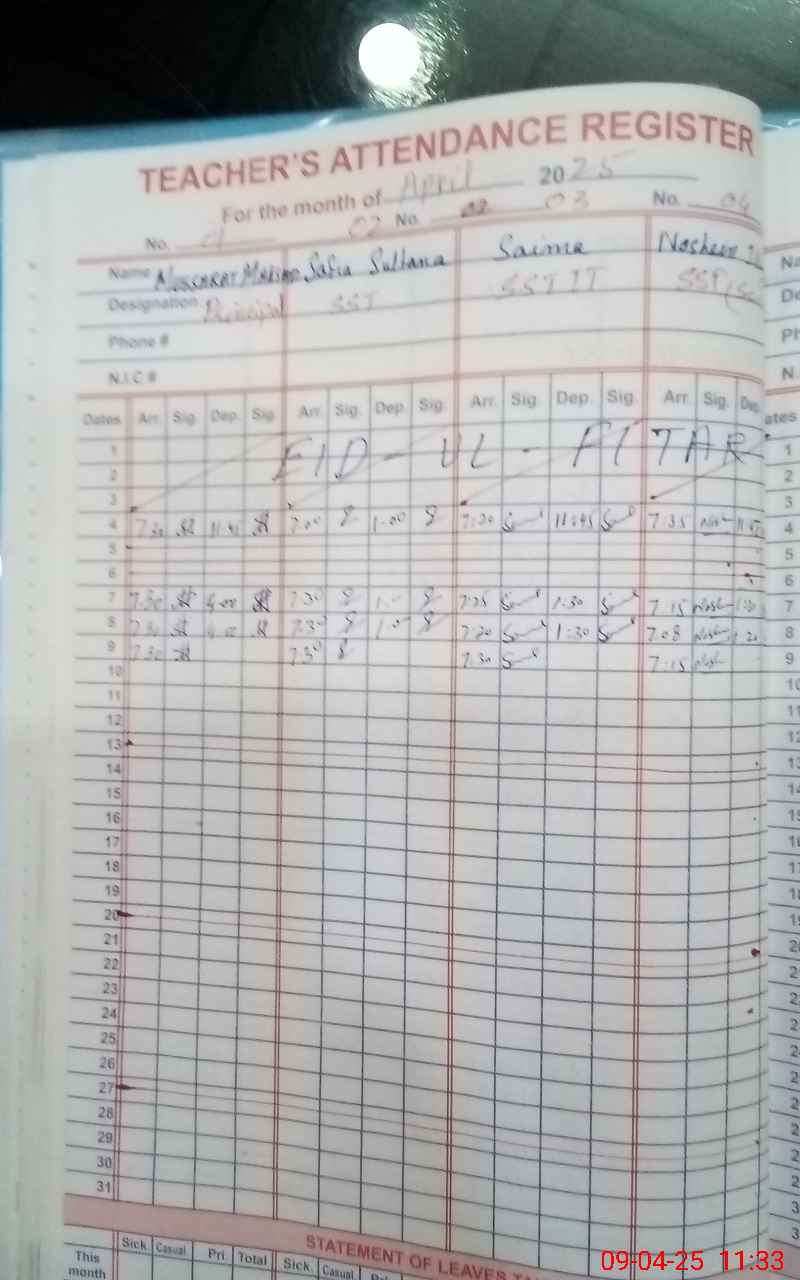 TEACHER'S ATTENDANCE REGISTER
For the month of April 2025
No. 01 02 No. 02 03 No. 04
Name Safia Sultana Saima Nosheen
Designation Principal SST SST IT SST (Sc
Phone #
N.I.C #
Dates Arr. Sig. Dep. Sig. Arr. Sig. Dep. Sig. Arr. Sig. Dep. Sig. Arr. Sig. Dep.
1 EID - UL - FITAR 1
2 2
3 3
4 7:30 11:45 7:00 1:00 7:20 11:45 7:35 4
5 5
6 6
7 7:30 4:00 7:30 1:0 7:25 1:30 7:15 Nosh 1:30 7
8 7:30 4:00 7:30 1:0 7:20 1:30 7:08 Nosh 1:20 8
9 7:30 7:30 7:30 7:15 Nosh 9
10
11
12
13
14
15
16
17
18
19
20
21
22
23
24
25
26
27
28
29
30
31
STATEMENT OF LEAVES
This month Sick. Casual Pri. Total Sick. Casual
09-04-25 11:33